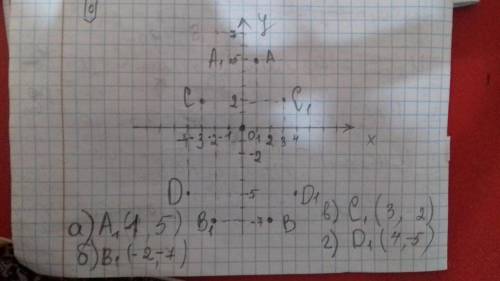 y
7
A₁ 5 A
C 2 C₁
-4 -3 -2 -1 0 1 2 3 4 x
-2
D 5 D₁
B₁ -7 B
а) A₁ (1, 5)
б) B₁ (-2, -7)
в) C₁ (3, 2)
г) D₁ (4, -5)